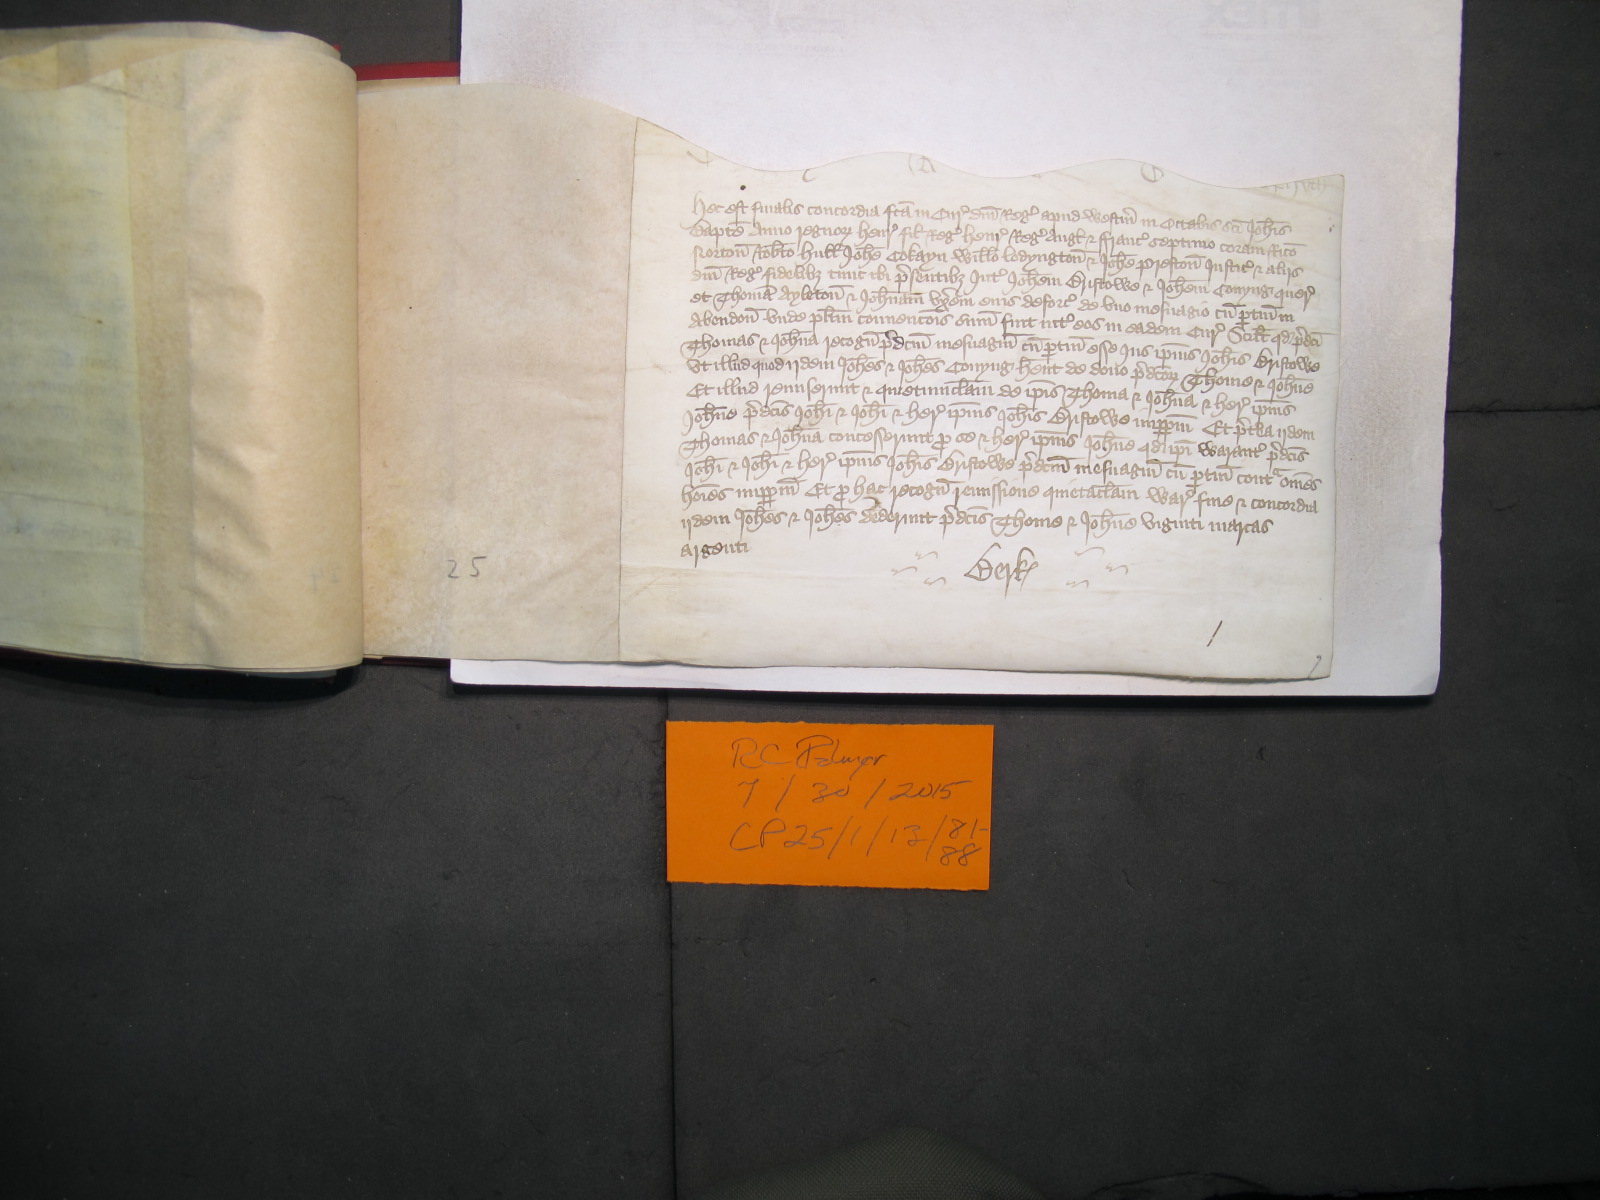 Hec est finalis concordia fc̄a in Cur' dn̄i Reg' apud Westm̄ in Octabis sc̄i Joh̄is
Bapte Anno regnor' Henr' fil' Reg' Henr' Reg' Angl' & Franc' septimo coram Ric̄o
Norton̄ Rob̄to Hull Joh̄e Cokayn Will̄o Lodyngton̄ & Joh̄e Preston̄ Justic' & aliis
dn̄i Reg' fidelibz tunc ibi p̄sentibz Int' Joh̄em Bristowe & Joh̄em Conyng quer'
et Thomā Ayleton̄ & Joh̄nam vx̄em eius deforc' de vno mesuagio cū p̄tin̄ in
Abendon̄ Vnde pl̄itm̄ conuenc̄ois sum̄ fuit int' eos in eadem Cur' Scil̄t qd p̄dc̄i
Thomas & Joh̄na recogn̄ p̄dc̄m̄ mesuagiū cū p̄tin̄ esse Jus ip̄ius Joh̄is Bristowe
Vt illud quod ijdem Joh̄es & Joh̄es Conyng hēnt de dono p̄dc̄or' Thome & Joh̄ne
Et illud remiserunt & quietumclam̄ de ip̄is Thoma & Joh̄na & her' ip̄ius
Joh̄ne p̄dc̄is Joh̄i & Joh̄i & her' ip̄ius Joh̄is Bristowe imppm̄ Et p̄t'ea ijdem
Thomas & Joh̄na concesserunt p se & her' ip̄ius Joh̄ne qd ip̄i Warant' p̄dc̄is
Joh̄i & Joh̄i & her' ip̄ius Joh̄is Bristowe p̄dc̄m̄ mesuagiū cū p̄tin̄ cont' om̄es
hoīes imppm̄ Et p hac recogn̄ remissione quietaclam̄ War' fine & concordia
ijdem Joh̄es & Joh̄es dederunt p̄dc̄is Thome & Joh̄ne viginti marcas
argenti
Berk'
25
RC Palmer
7/30/2015
CP25/1/13/81-
88